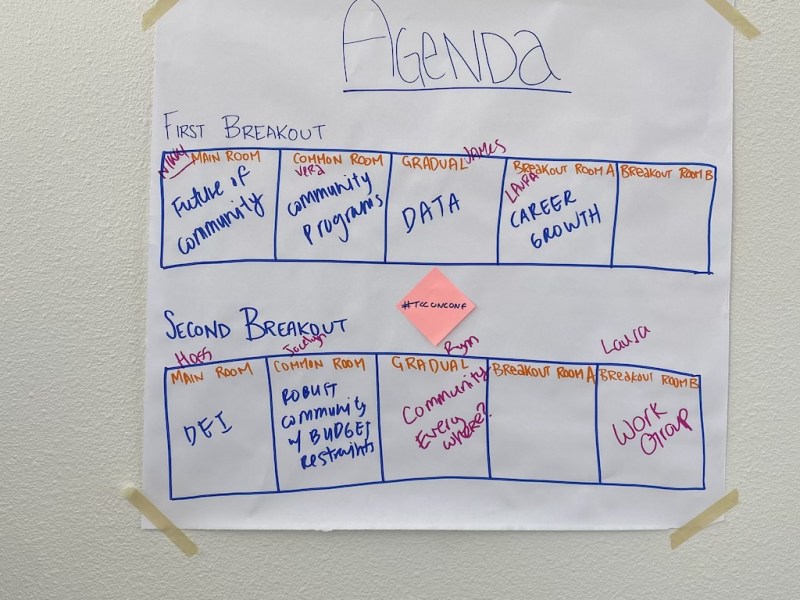 AGENDA
FIRST BREAKOUT
MAIN ROOM
Future of
community
COMMON ROOM
Vera
community
programs
GRADUAL
JAMES
DATA
BREAKOUT ROOM A
LAURA
CAREER
GROWTH
BREAKOUT ROOM B
#TCCUNCONF
SECOND BREAKOUT
MAIN ROOM
DEI
Jocelyn
COMMON ROOM
ROBUST
community
w/ BUDGET
restraints
Ryan
GRADUAL
Community
Every
where?
BREAKOUT ROOM A
Laura
BREAKOUT ROOM B
Work
Group